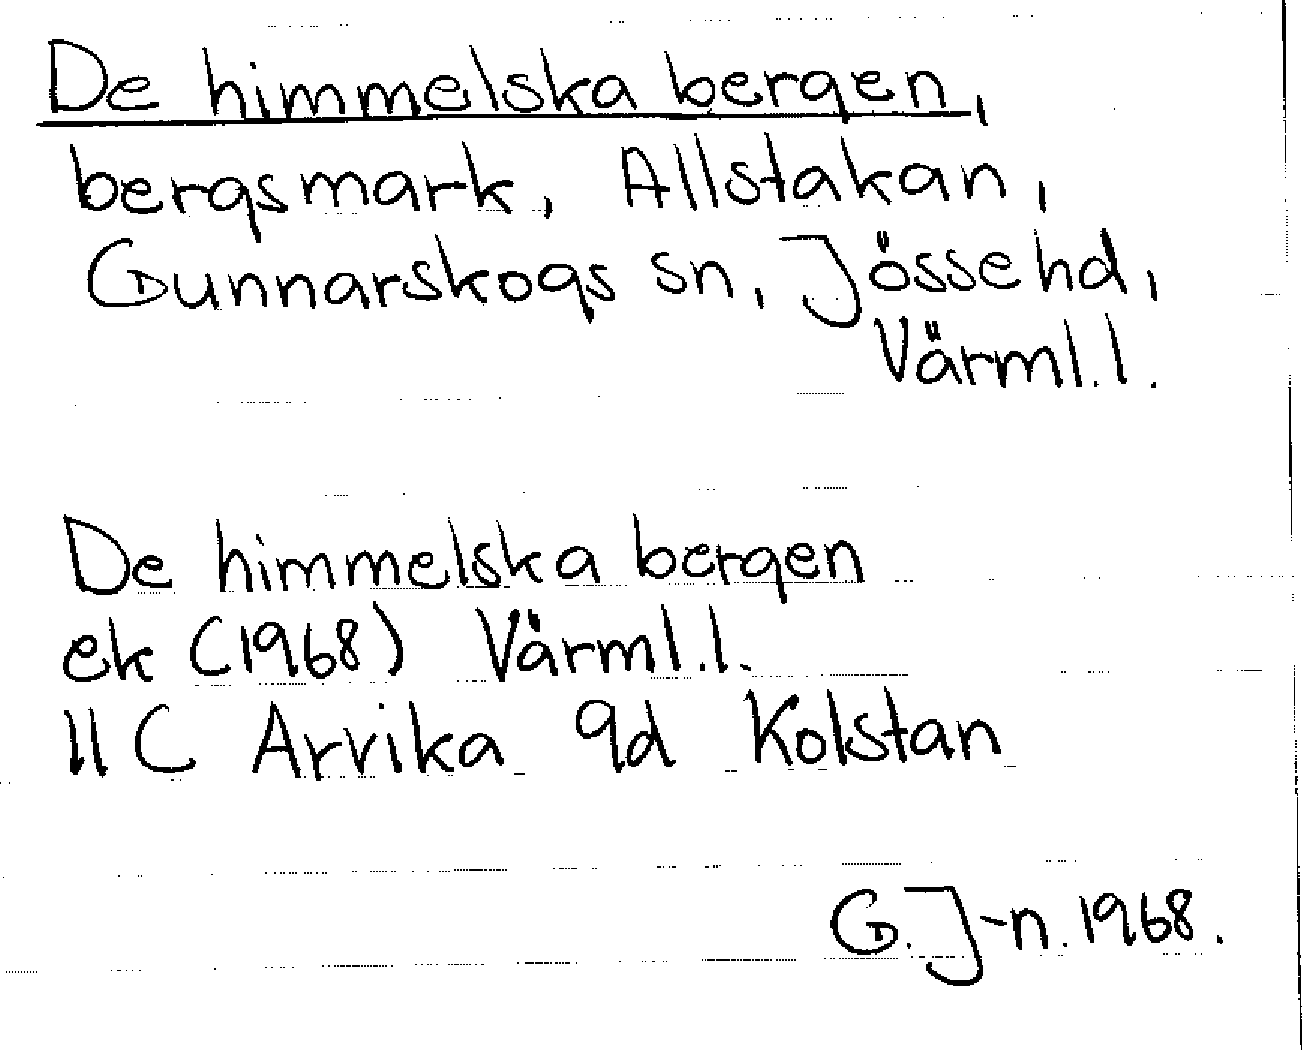 De himmelska bergen,
bergsmark, Allstakan,
Gunnarskogs sn, Jösse hd,
Värml.l.
De himmelska bergen
ek (1968) Värml.l.
11 C Arvika 9d Kolstan
G.J-n.1968.